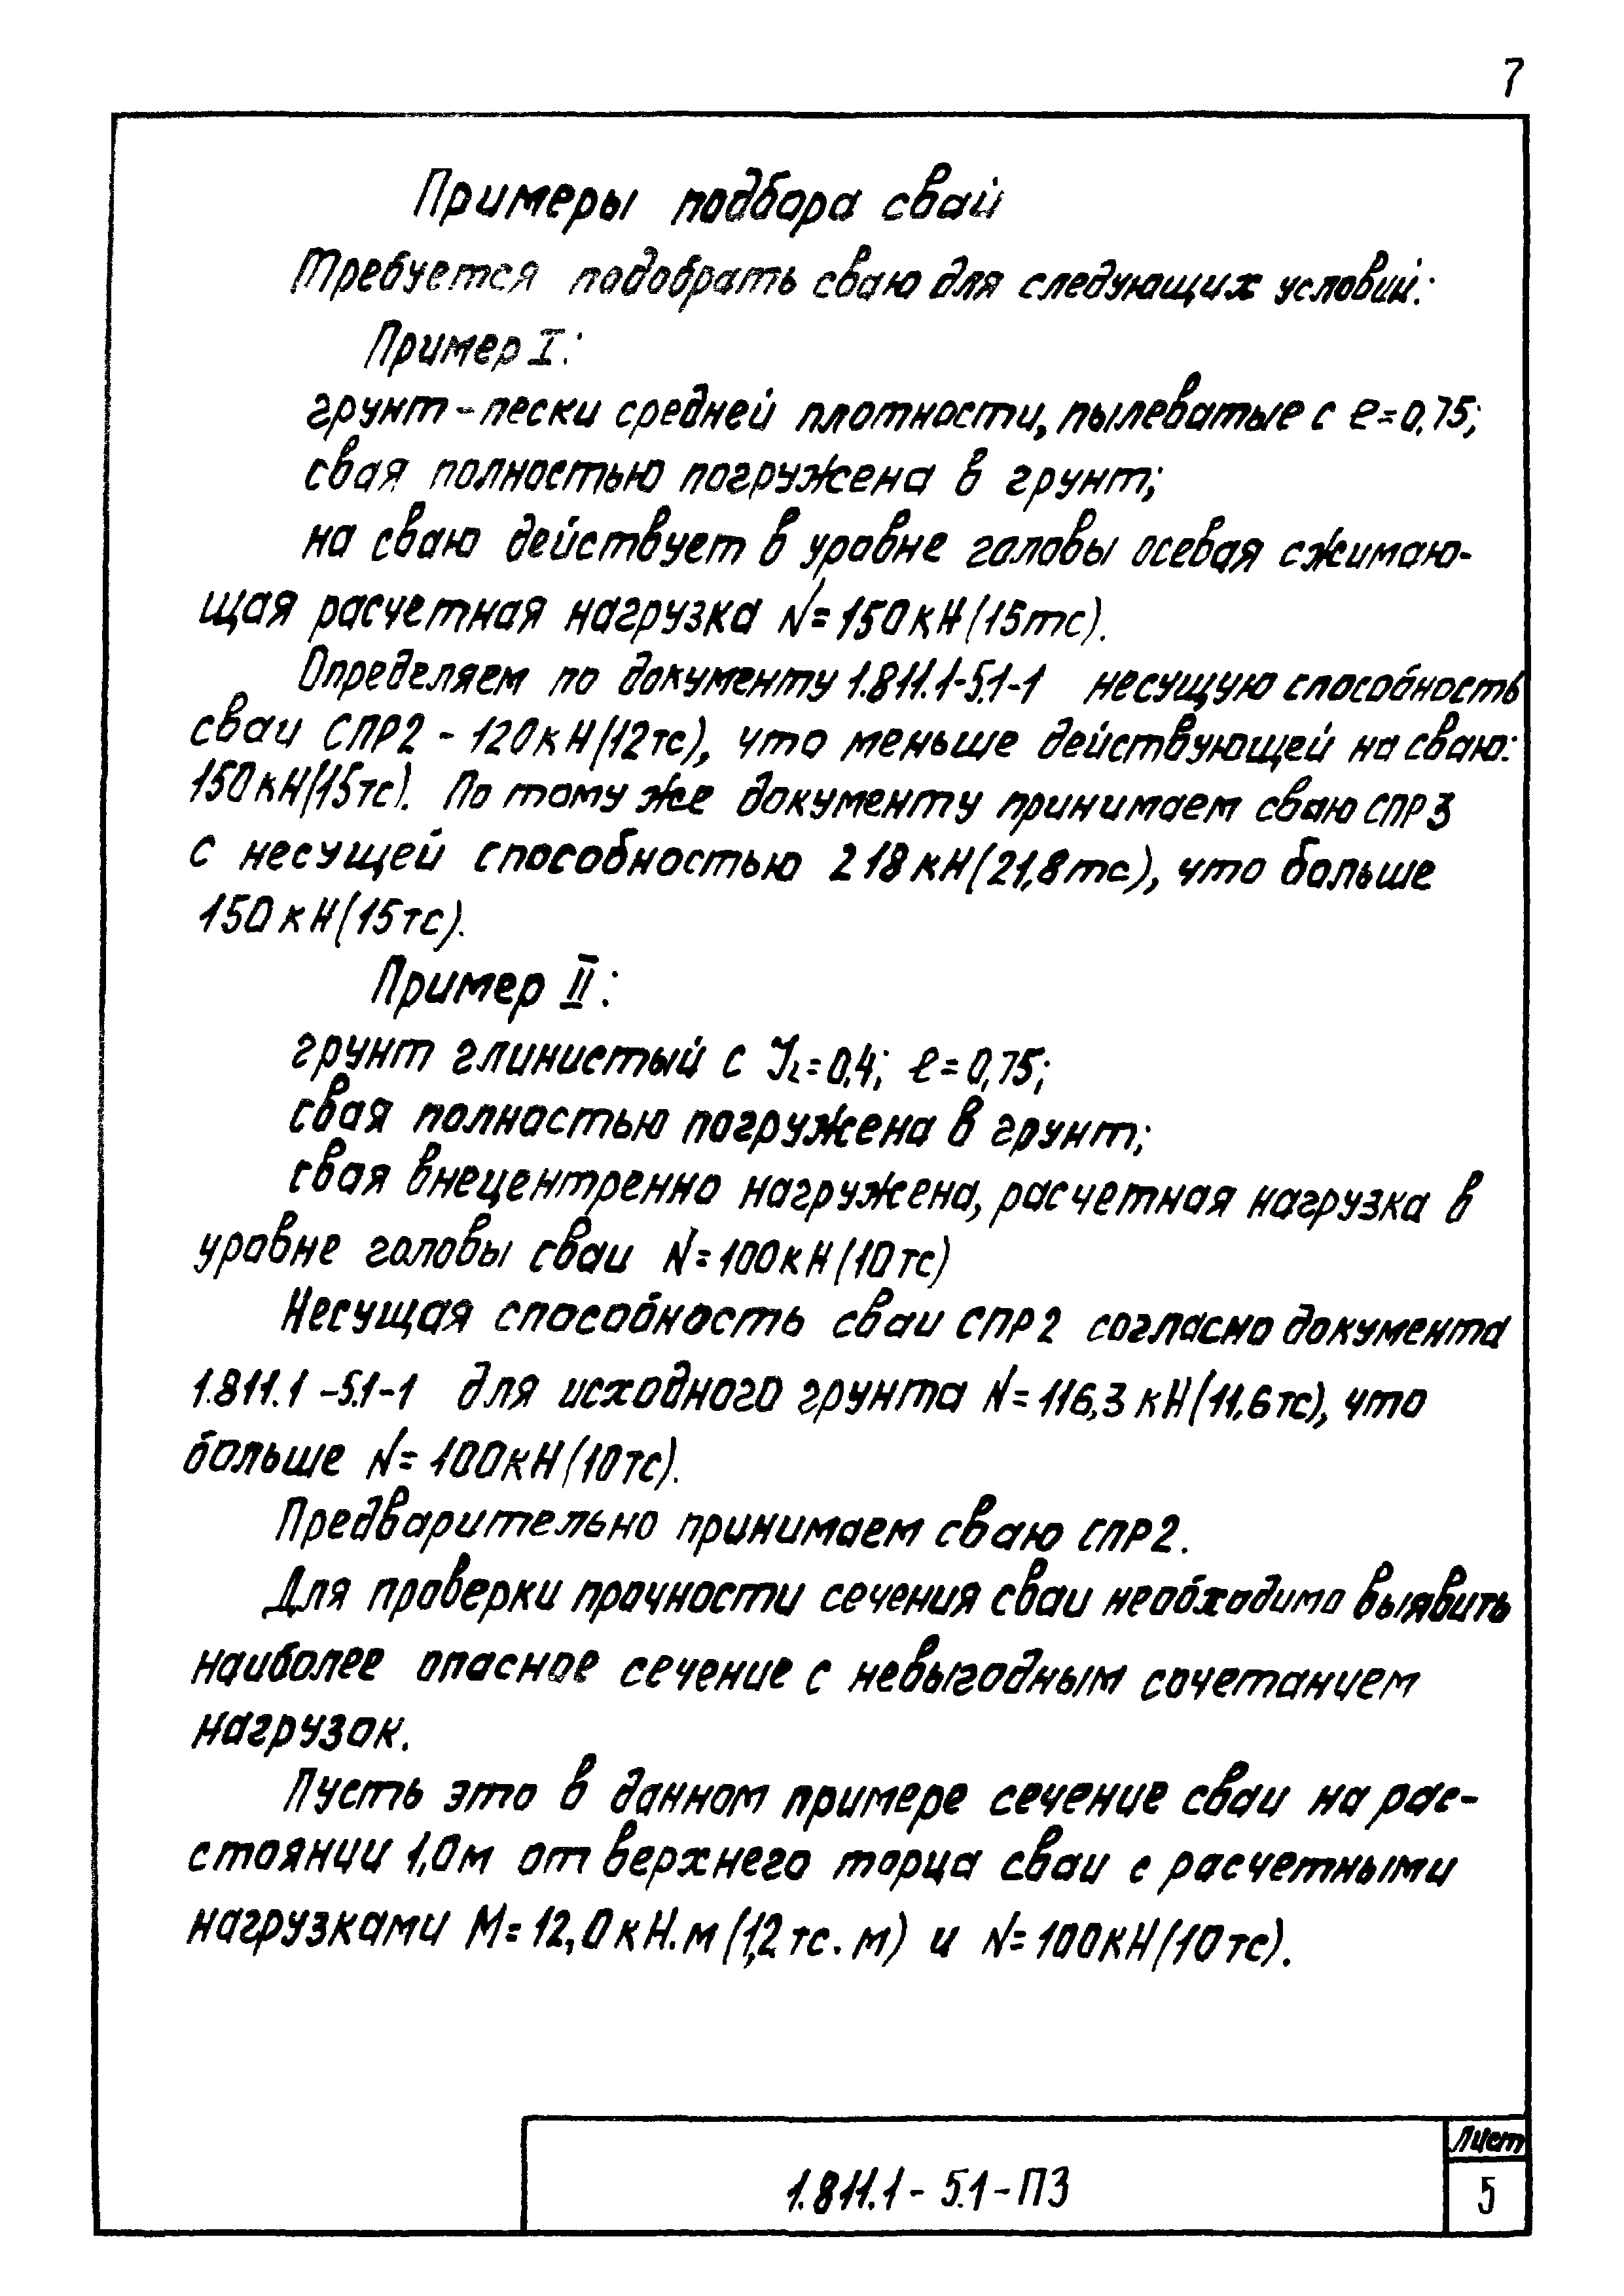 7
Примеры подбора свай
Требуется подобрать сваю для следующих условий:
Пример I:
грунт - пески средней плотности, пылеватые с e=0,75;
свая полностью погружена в грунт;
на сваю действует в уровне головы осевая сжимаю-
щая расчетная нагрузка N=150кН(15тс).
Определяем по документу 1.811.1-5.1-1 несущую способность
сваи СПР2 - 120кН(12тс), что меньше действующей на сваю:
150кН(15тс). По тому же документу принимаем сваю СПР3
с несущей способностью 218кН(21,8тс), что больше
150кН(15тс).
Пример II:
грунт глинистый с JL=0,4; e=0,75;
свая полностью погружена в грунт;
свая внецентренно нагружена, расчетная нагрузка в
уровне головы сваи N=100кН(10тс)
Несущая способность сваи СПР2 согласно документа
1.811.1-5.1-1 для исходного грунта N=116,3кН(11,6тс), что
больше N=100кН(10тс).
Предварительно принимаем сваю СПР2.
Для проверки прочности сечения сваи необходимо выявить
наиболее опасное сечение с невыгодным сочетанием
нагрузок.
Пусть это в данном примере сечение сваи на рас-
стоянии 1,0м от верхнего торца сваи с расчетными
нагрузками М=12,0кН.м(1,2тс.м) и N=100кН(10тс).
1.811.1-5.1-ПЗ
Лист
5